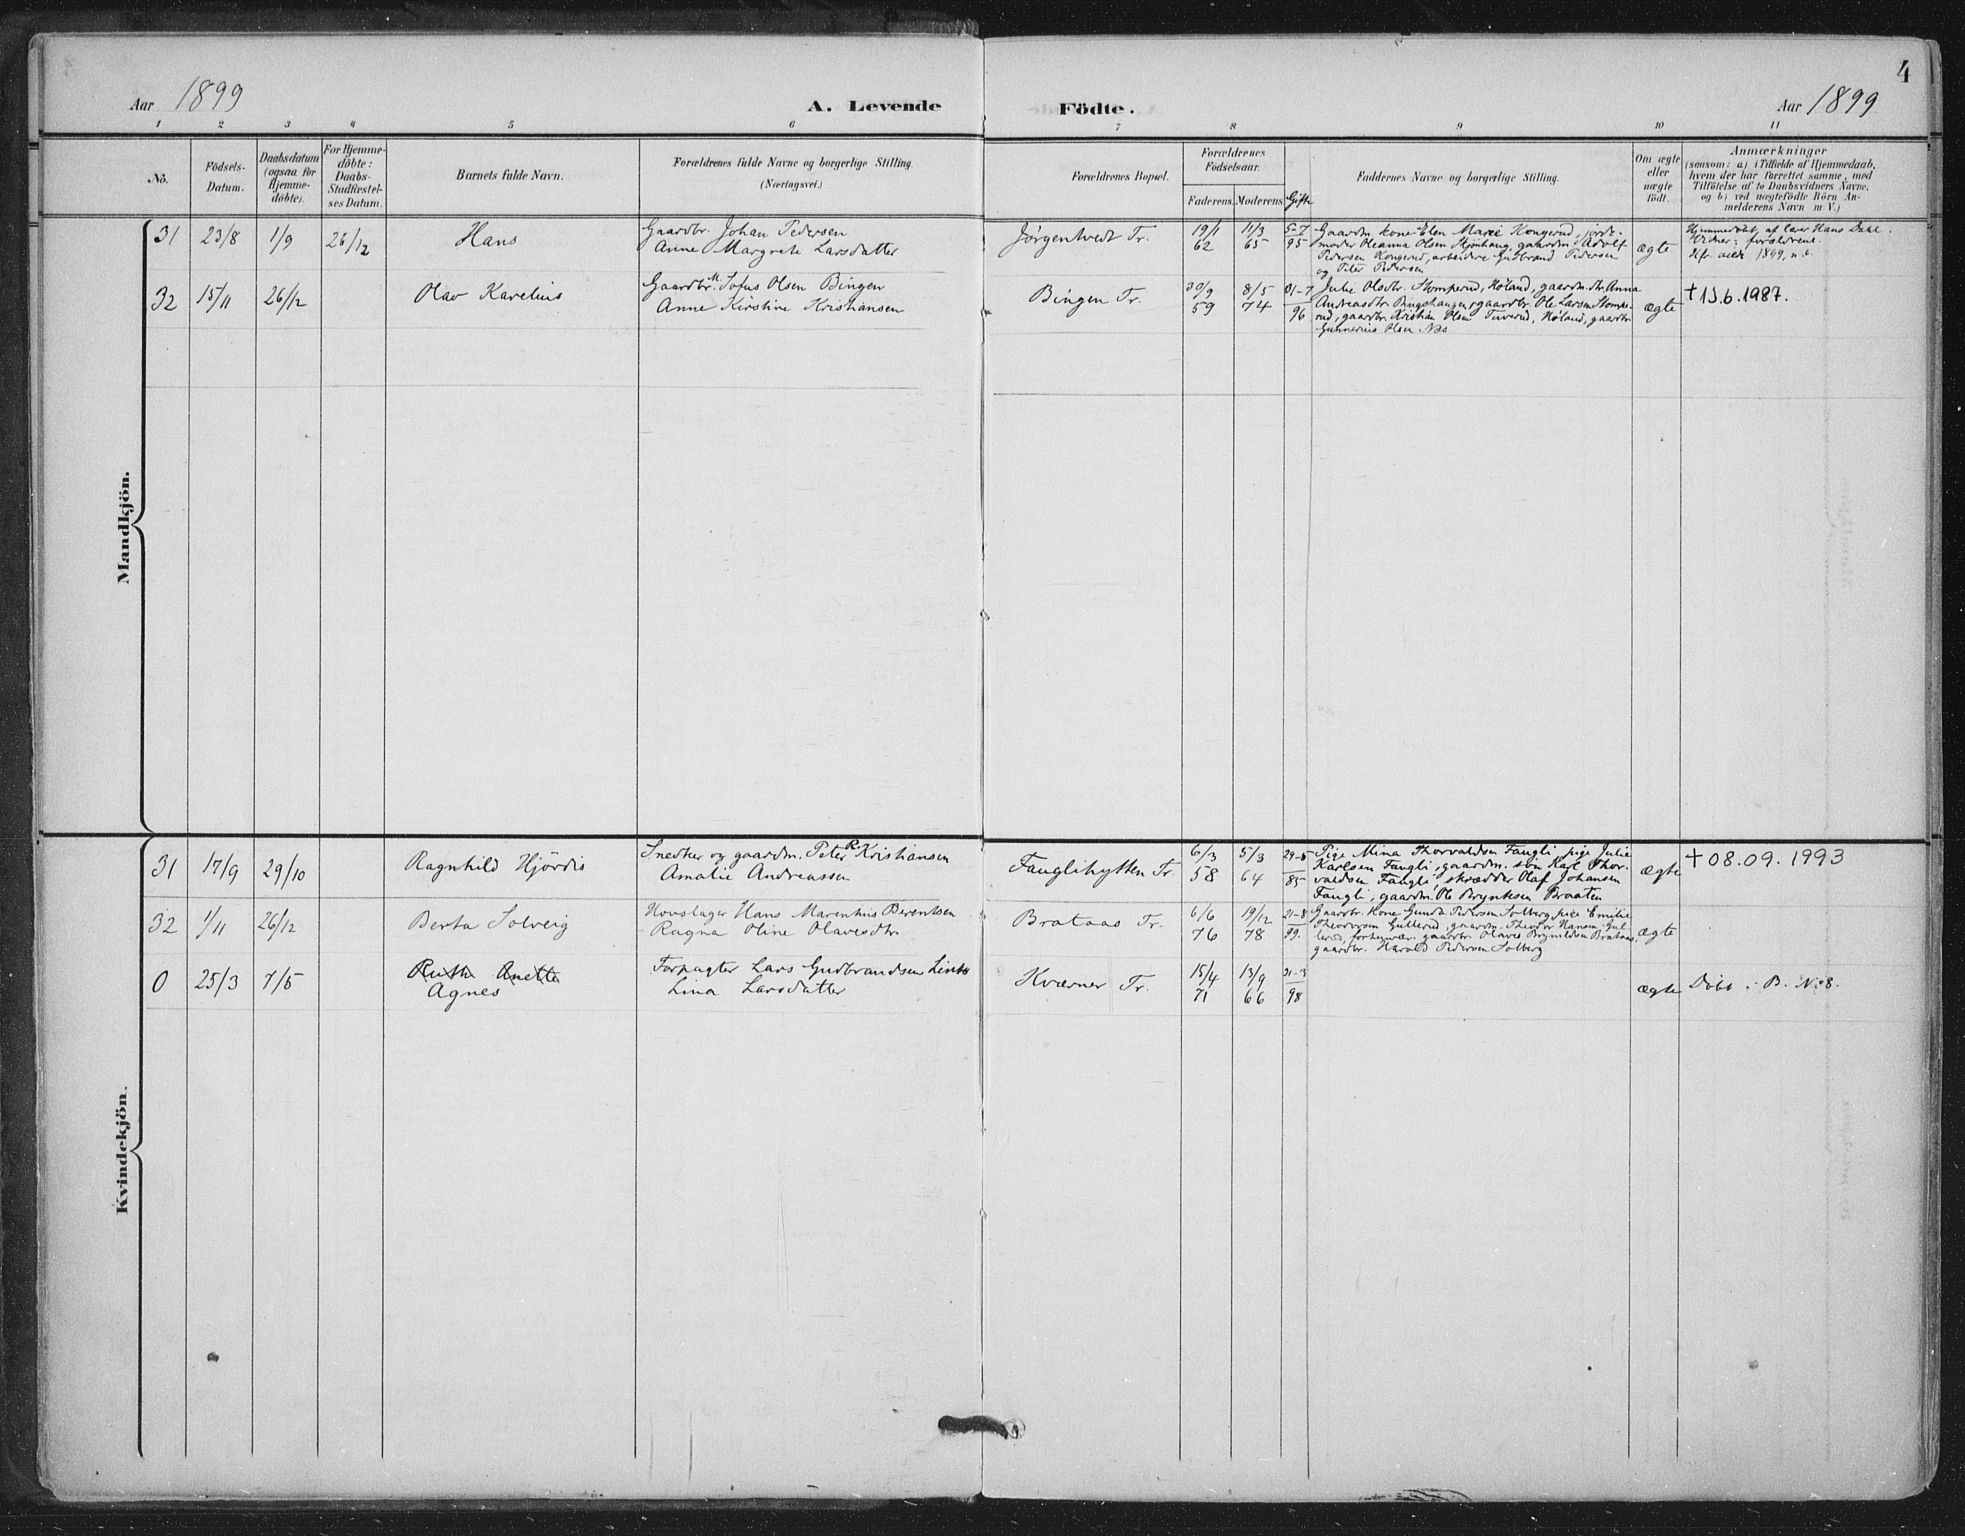 4
Aar 1899
A. Levende Födte.
Aar 1899
1 2 3 4 5 6 7 8 9 10 11
No.
Födsels-Datum.
Daabsdatum (ogsaa for Hjemme-döbte).
For Hjemme-döbte: Daabs-Stadfæstel-ses Datum.
Barnets fulde Navn.
Forældrenes fulde Navne og borgerlige Stilling.
(Næringsvei.)
Forældrenes Bopæl.
Forældrenes Födselsaar.
Faderens. Moderens. Gifte
Faddernes Navne og borgerlige Stilling.
Om ægte eller uægte födt.
Anmærkninger
(saasom: a) i Tilfælde af Hjemmedaab,
hvem der har forrettet samme, med
Tilföielse af to Daabsvidners Navne,
og b) ved uægtefödte Börn An-
melderens Navn m. V.)
Mandkjön.
31 23/8 1/9 26/12 Hans
Gaardbr. Johan Pedersen
Anne Margrete Larsdatter
Jørgentvedt Tr.
19/1 62
11/3 65
5-7 95
Gaardm. kone Elen Marie Kongerud, jorde-
moder Oleanna Olsen Skjönhaug, gaardm Adolf
Pedersen Kongerud, arbeidere Gudbrand Pedersen
og Peter Pedersen
ægte
Hjemmedøbt af lærer Hans Dahl.
Vidner: forældrene.
32 15/11 26/12 Olav Karelius
Gaardbr. M. Sofus Olsen Bingen
Anne Kirstine Kristiansen
Bingen Tr.
30/9 59
8/5 74
31-7 96
Julie Olsdtr. Stomperud, Høland, gaardm. dtr. Anna
Andreasdtr. Bingshaugen, gaardbr. Ole Larsen Stompe-
rud, gaardbr. Kristian Olsen Tuverud, Høland, gaardbr.
Gunnerius Olsen Næs
ægte
† 13.6.1987.
Kvindekjön.
31 17/9 29/10 Ragnhild Hjördis
Snedker og gaardm. Peter R. Kristiansen
Amalie Andreassen
Fauglihytten Tr.
6/3 58
5/3 64
29-5 85
Pige Mina Thorvaldsen Faugli, pige Julie
Karlsen Faugli, gaardm. søn Karl Thor-
valdsen Faugli, skrædder Olaf Johansen
Faugli, gaardm. Ole Bryntesen Braaten
ægte
† 08.09.1993
32 1/11 26/12 Berta Solveig
Hovslager Hans Marenius Berentsen
Ragna Oline Olavesdtr.
Brataas Tr.
6/6 76
19/12 78
21-8 99.
Gaardbr. Kone Gunda Pedersen Solberg, pige Emilie
Theodorsen Gullerud, gaardm. Theodor Hansen Gul-
lerud, forhenvær. gaardbr. Olaves Brynildsen Brataas,
gaardbr. Harald Pedersen Solberg
ægte
0 25/3 7/5 Ruth Anette
Agnes
Forpagter Lars Gudbrandsen
Lina Larsdatter
Kværner Tr.
15/4 71
13/9 66
31-3 98
ægte
Døbt i B. No 8.